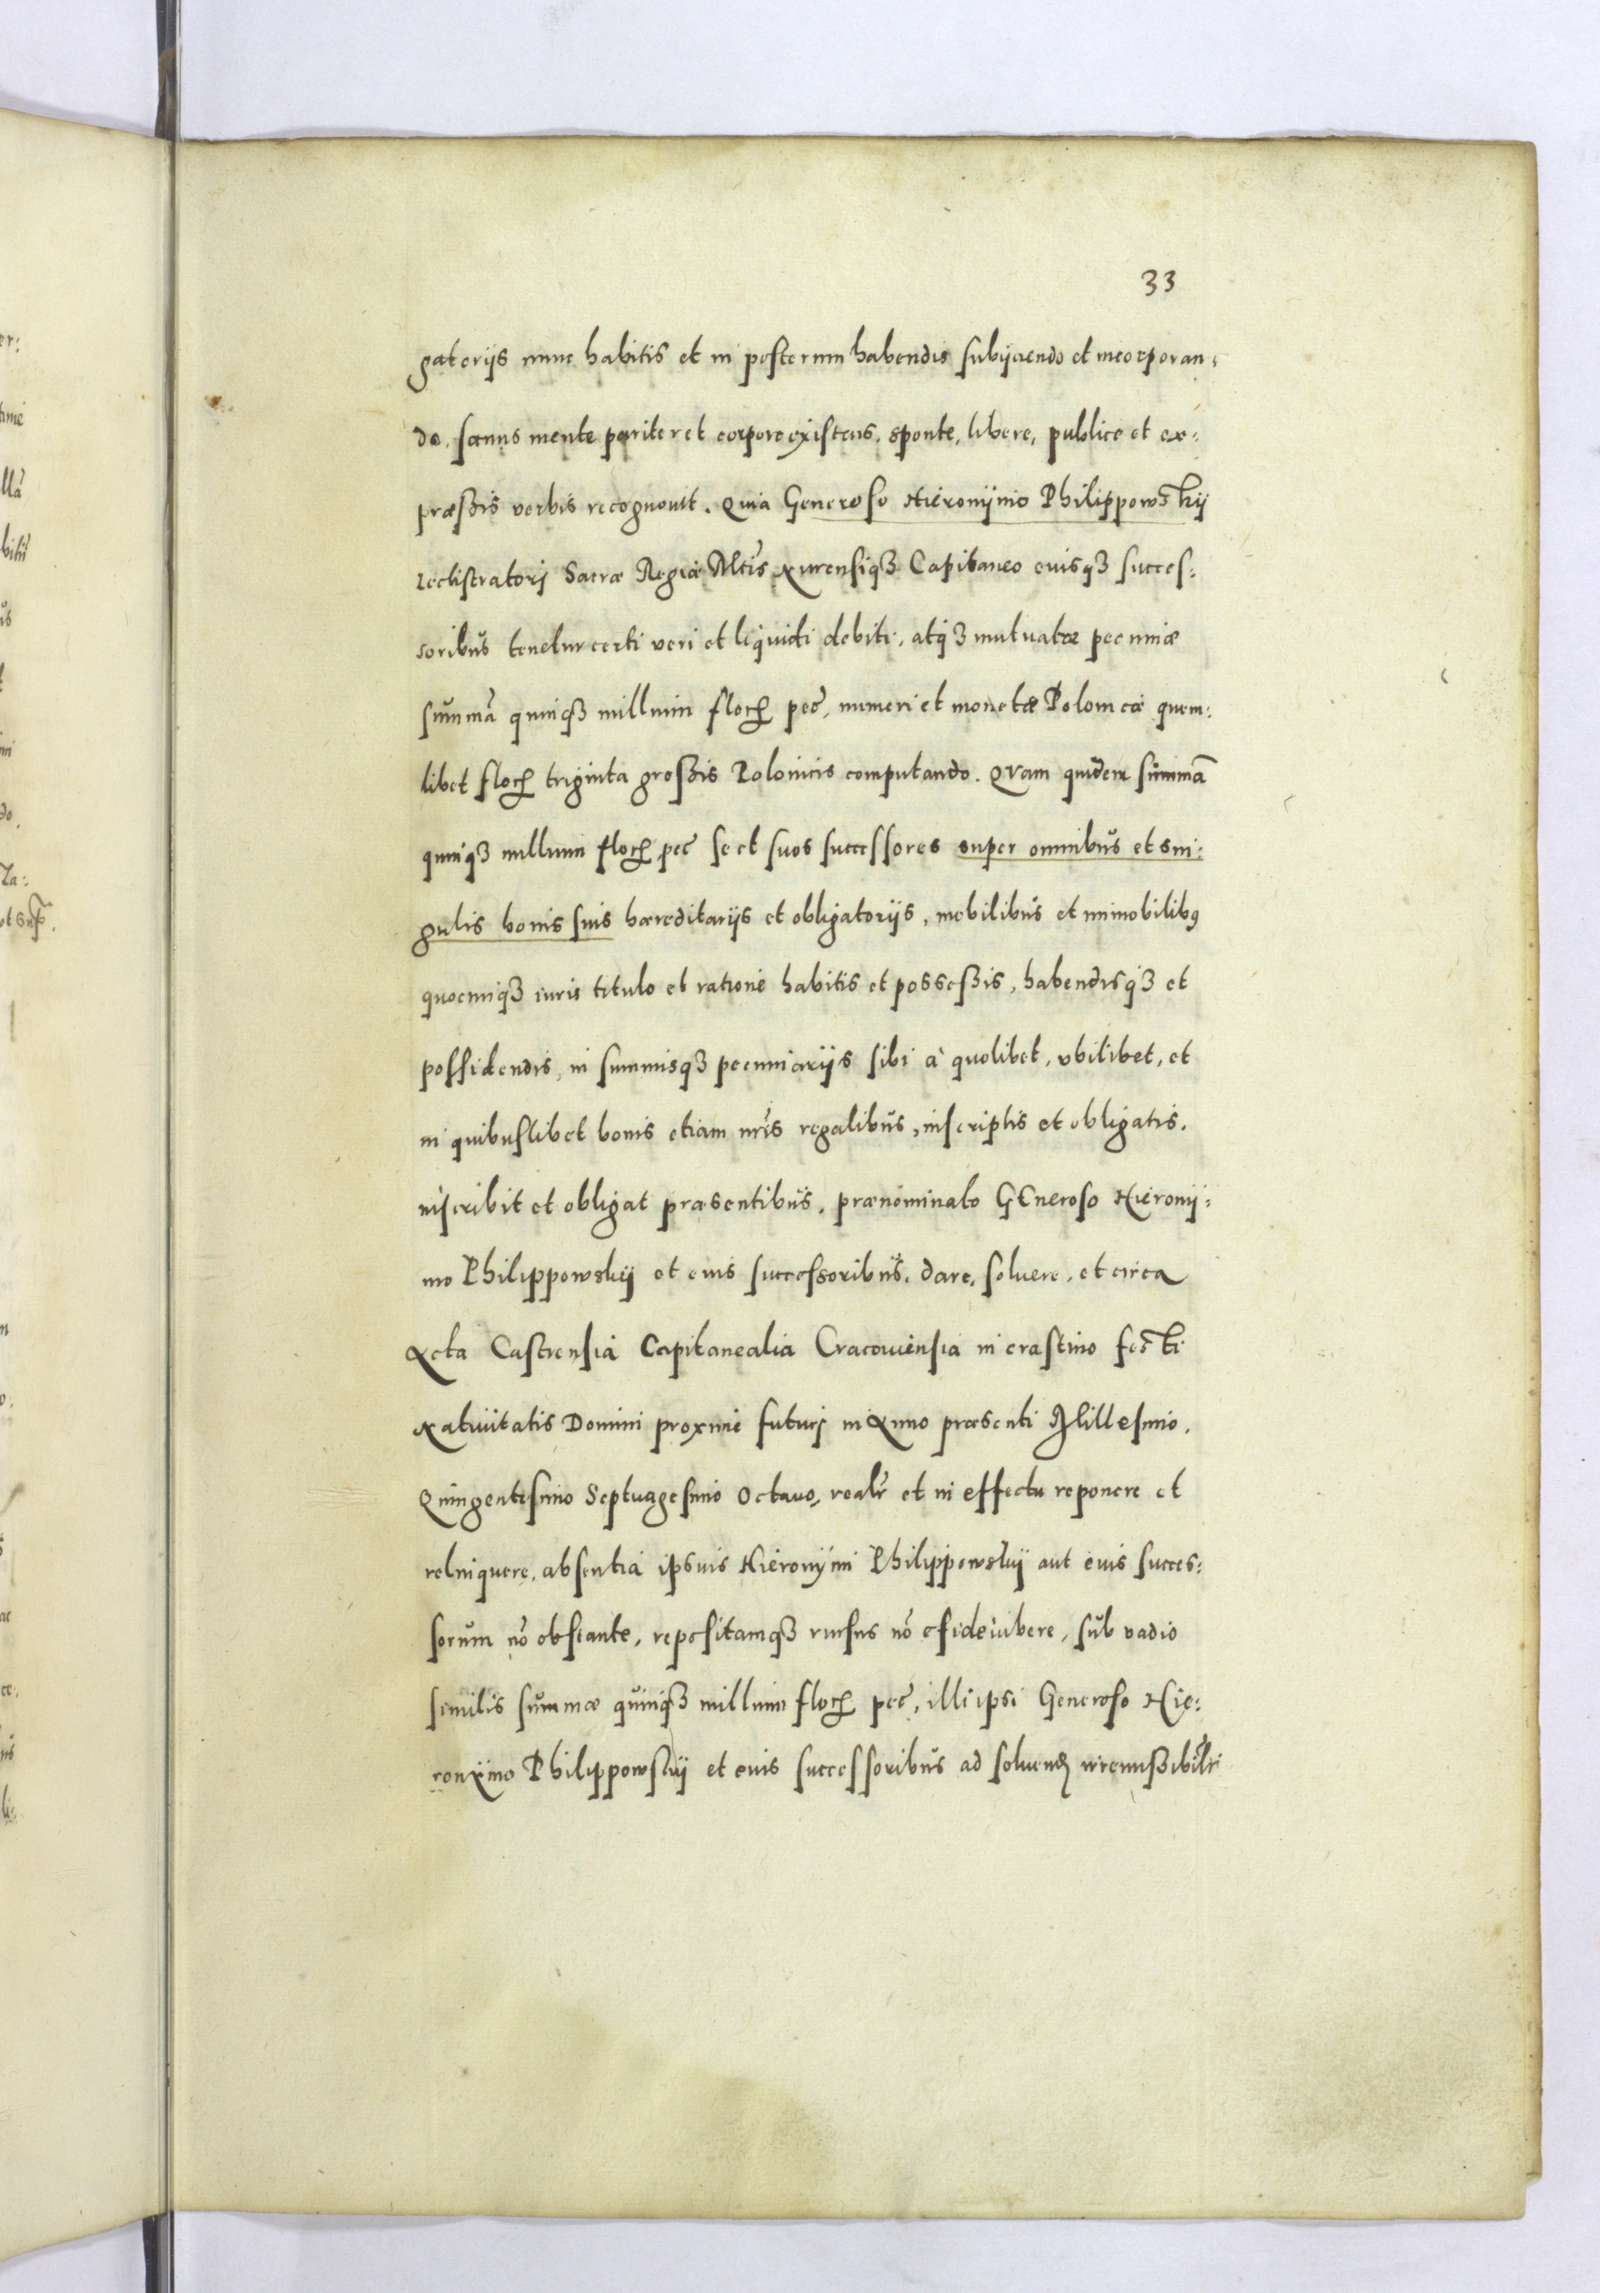 33
gatorijs nunc habitis et in posterum habendis subijciendo et incorporan:
do. sanus mente pariter et corpore existens, sponte, libere, publice et ex:
præssis verbis recognouit. Quia Generoso Hieronijmo Philippowskij
Sacræ Regiæ Mtis Capitaneo euisq3 succes:
soribus tenetur certi veri et liquidi debiti, atq3 mutuatæ pecuniæ
summā quinq3 millium floꝝ pec̄, numeri et monetæ Polonicæ quem:
libet floꝝ triginta grossis Polonicis computando. Quam quidem summā
quinq3 millium floꝝ pec̄ se et suos successores super omnibus et sin:
gulis bonis suis hæreditarijs et obligatorijs, mobilibus et immobilibꝰ
quocunq3 iuris titulo et ratione habitis et possessis, habendisq3 et
possidendis, in summisq3 pecuniarijs sibi à quolibet, vbilibet, et
in quibuslibet bonis etiam nr̄is regalibus, inscriptis et obligatis.
inscribit et obligat præsentibus, prænominato GEneroso Hieronij:
mo Philippowskij et euis successoribus, dare, soluere, et circa
Acta Castrensia Capitanealia Cracouiensia in crastino festi
Natiuitatis Domini proxime futurj in Anno præsenti Millesimo.
Quingentesimo Septuagesimo Octauo, realr̄ et in effectu reponere et
relinquere, absentia ipsuis Hieronijmi Philippowskij aut euis succes:
sorum nō obstante, repositamq3 rursus nō sub vadio
similis summæ quinq3 millium floꝝ pec̄, illi ipsi Generoso Hie:
ronÿmo Philippowskij et euis successoribus ad soluenđ irremissibilr̄